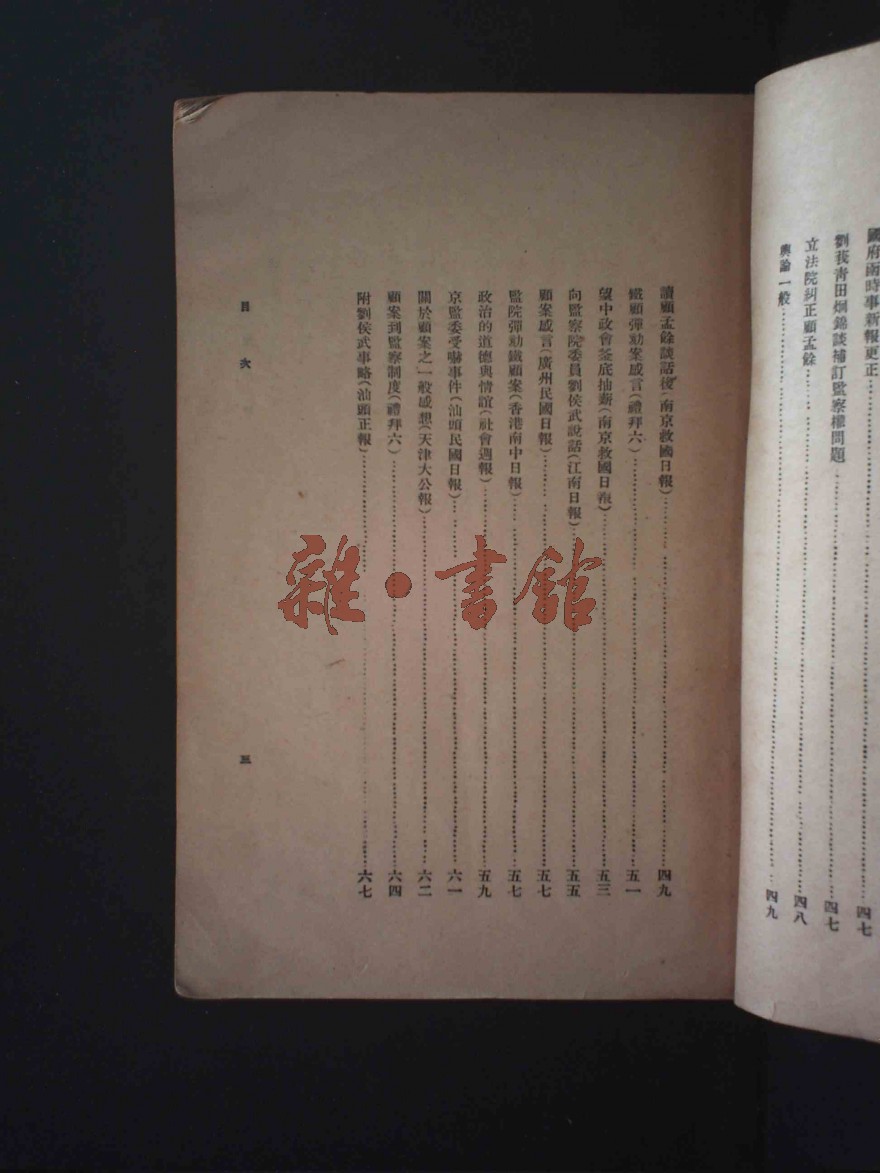 國府雨時事新報更正⋯⋯四七
劉莪青田炯錦談補訂監察權問題⋯⋯四七
立法院糾正顧孟餘⋯⋯四八
輿論一般⋯⋯四九
讀顧孟餘談話後(南京救國日報)⋯⋯四九
鐵顧彈劾案感言(禮拜六)⋯⋯五一
望中政會釜底抽薪(南京救國日報)⋯⋯五三
向監察院委員劉侯武說話(江南日報)⋯⋯五五
顧案感言(廣州民國日報)⋯⋯五七
監院彈劾鐵顧案(香港南中日報)⋯⋯五七
政治的道德與情誼(社會週報)⋯⋯五九
京監委受嚇事件(汕頭民國日報)⋯⋯六一
關於顧案之一般感想(天津大公報)⋯⋯六二
顧案到監察制度(禮拜六)⋯⋯六四
附劉侯武事略(汕頭正報)⋯⋯六七
目次
三
雜·書館